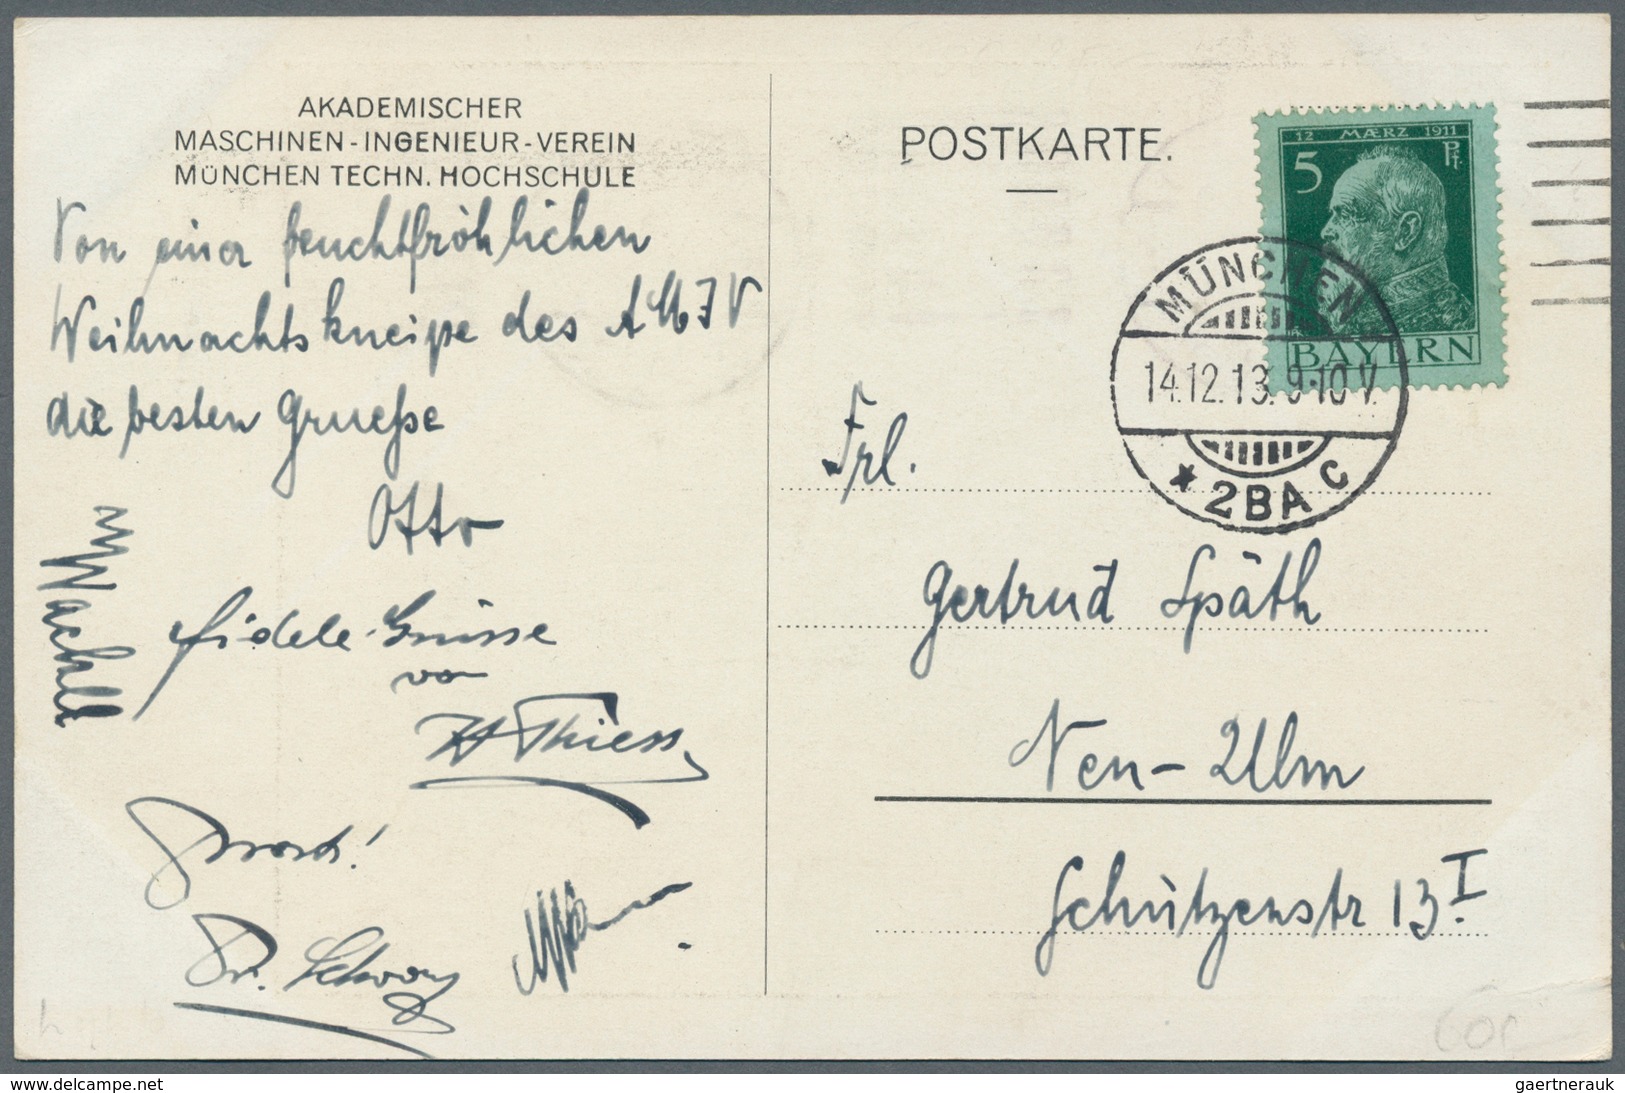 AKADEMISCHER
MASCHINEN-INGENIEUR-VEREIN
MÜNCHEN TECHN. HOCHSCHULE
Von einer feuchtfröhlichen
Weihnachtskneipe des AMIV
die besten Gruesse
Otto
fidele Grüsse
von
H Thiess
Prost!
Fr. Schwarz
POSTKARTE.
12 MÆRZ 1911
5 Pf.
BAYERN
MÜNCHEN
14.12.13. 9-10 V.
* 2BA C
Frl.
Gertrud Späth
Neu-Ulm
Schützenstr 13 I.
delcampe.net
gaertnerauk